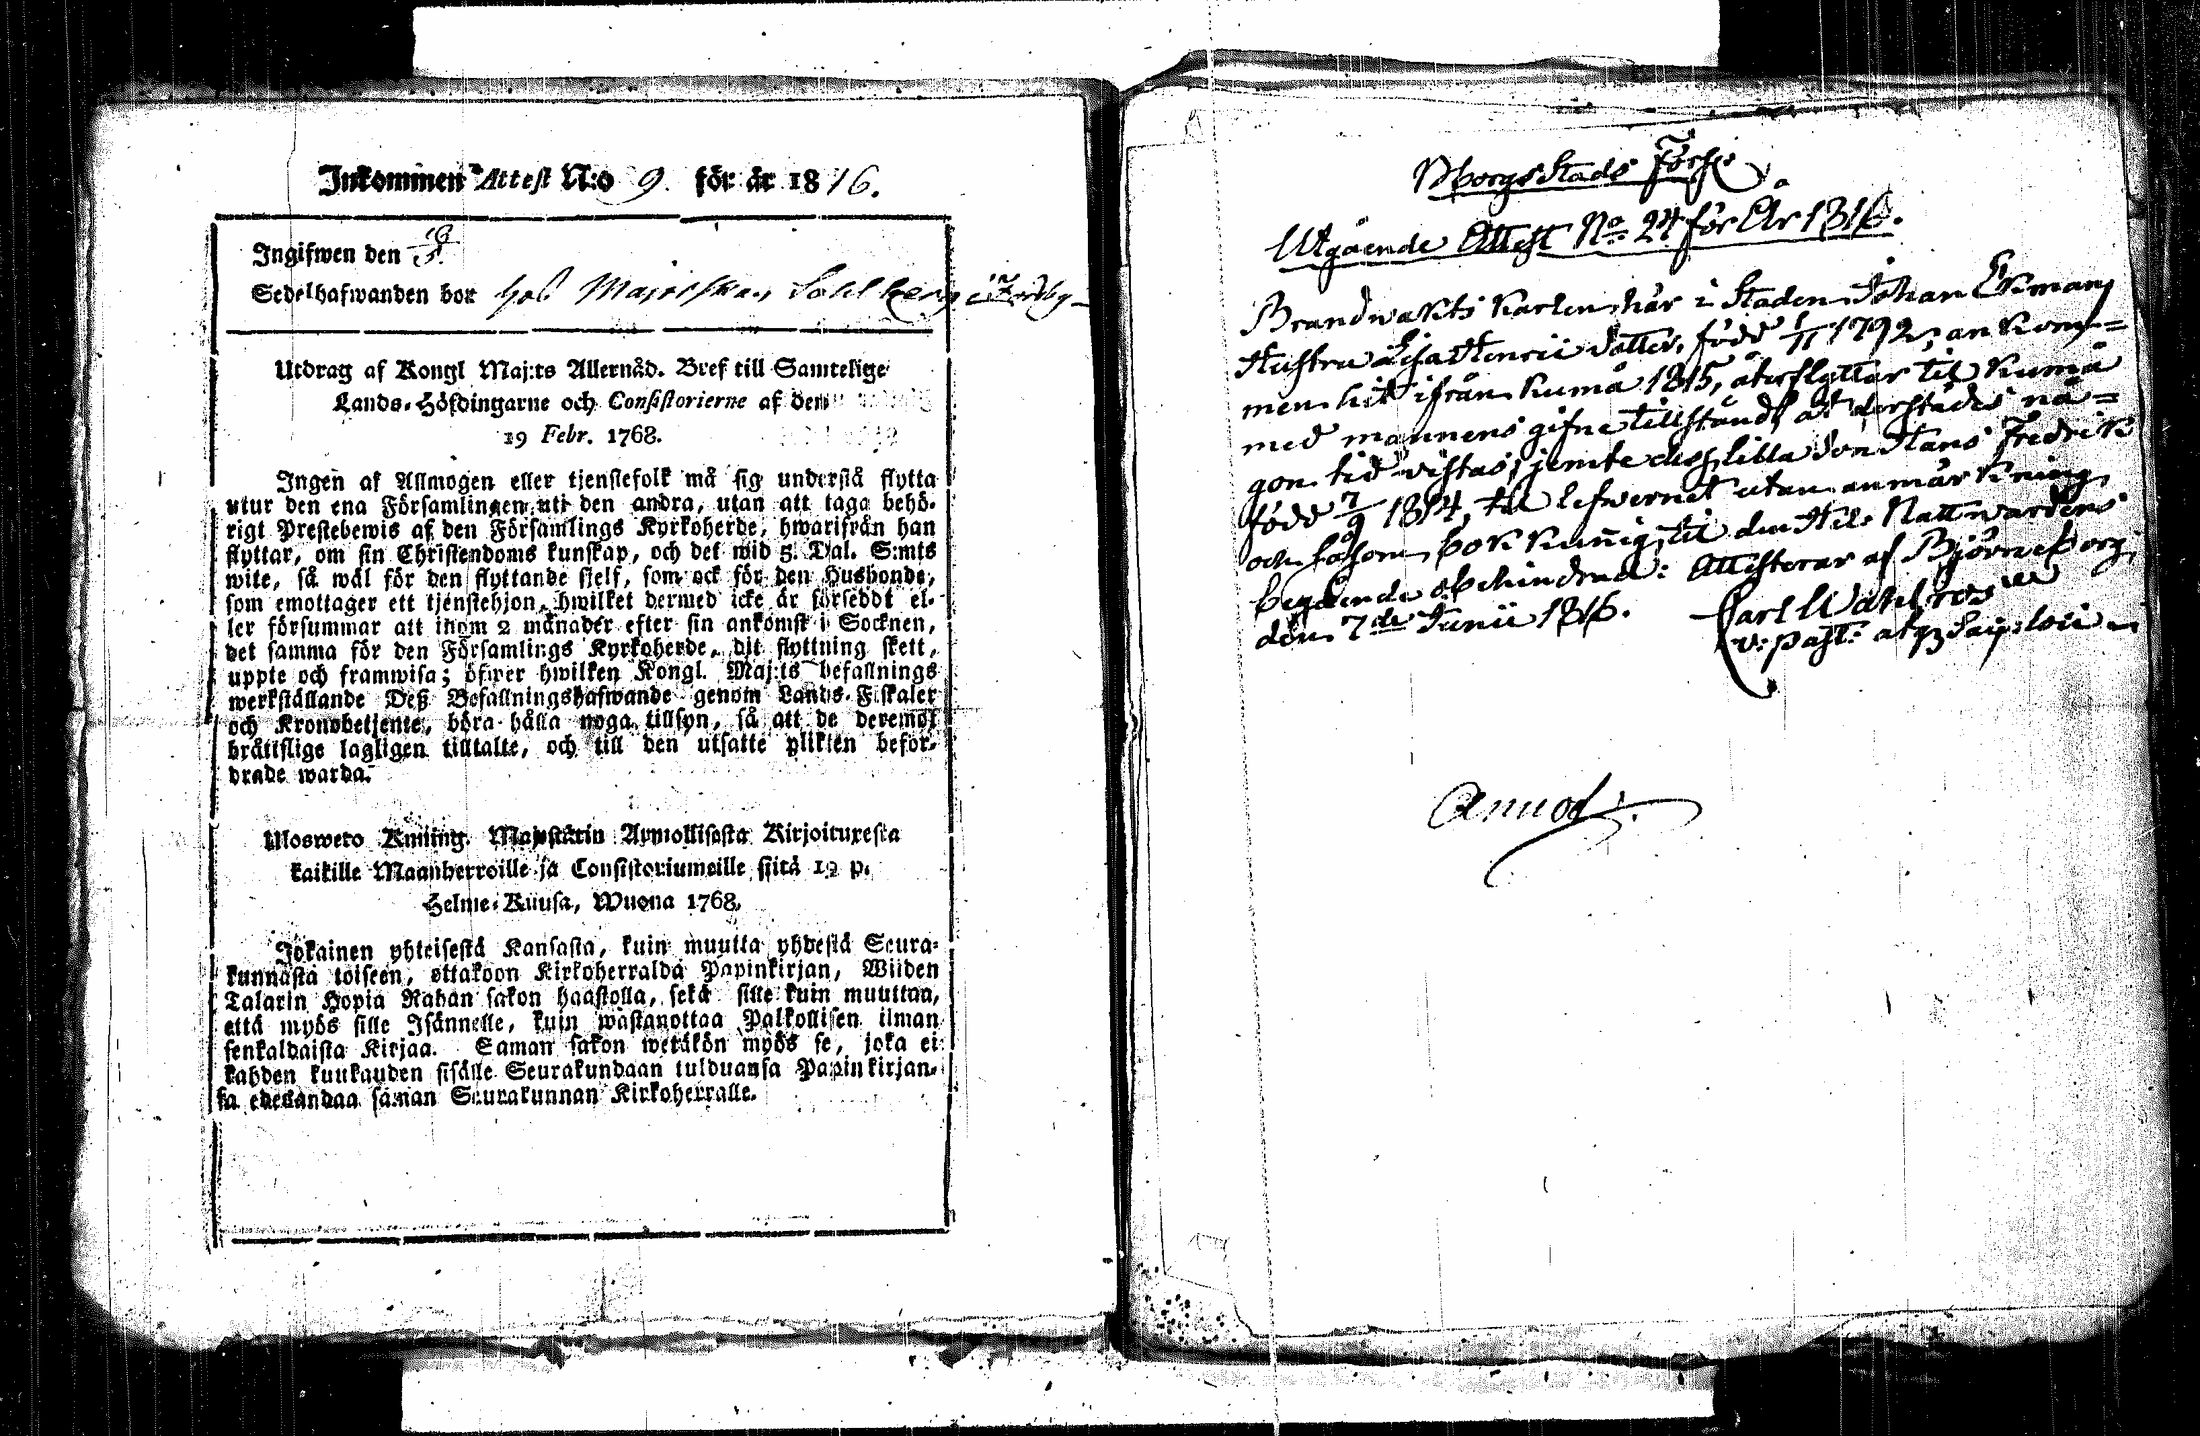 Inkommen Attest N:o 9. för år 1816.
Ingifwen den
Sedelhafwanden bor hos Majorskan Sohlberg i
Utdrag af Kongl Maj:ts Allernåd. Bref till Samtelige
Lands-Höfdingarne och Consistorierne af den
19 Febr. 1768.
Ingen af Allmogen eller tjenstefolk må sig understå flytta
utur den ena Församlingen uti den andra, utan att taga behö-
rigt Prestebewis af den Församlings Kyrkoherde, hwarifrån han
flyttar, om sin Christendoms kunskap, och det wid 5. Dal. S:mts
wite, så wäl för den flyttande sjelf, som ock för den Husbonde,
som emottager ett tjenstehjon, hwilket dermed icke är försedt el-
ler försummar att inom 2 månader efter sin ankomst i Socknen,
det samma för den Församlings Kyrkoherde, dit flyttning skett,
uppte och framwisa; öfwer hwilken Kongl. Maj:ts befallnings
werkställande Deß Befallningshafwande genom Lands-Fiskaler
och Kronobetjente, böra hålla noga tillsyn, så att de deremot
bråtislige lagligen tilltalte, och till den utsatte plikten befor-
drade warda.
Ulosweto Kuning. Majestätin Armollisesta Kirjoituxesta
kaikille Maanherroille ja Consistoriumeille siitä 19 p.
Helme-Kuusa, Wuona 1768.
Jokainen yhteisestä Kansasta, kuin muutta yhdestä Seura-
kunnasta toiseen, ottakoon Kirkoherralda Papinkirjan, Wiiden
Talarin Hopia Rahan sakon haastolla, sekä sille kuin muuttaa,
että myös sille Isännelle, kuin wastanottaa Palkollisen ilman
senkaldaista Kirjaa. Saman sakon wetäkön myös se, joka ei
kahden kuukauden sisälle Seurakundaan tulduansa Papinkirjan-
sa edesandaa saman Seurakunnan Kirkoherralle.
Bborgs Stads Förs:
Utgående Attest No 24 för År 1816.
Brandwakts karlen här i Staden Johan Ekman
Hustru Lisa Henric dotter, född 1/11 1792, ankom=
men hit ifrån Kumå 1815, återflyttar til Kumå
med mannens gifne tillstånd, at derstädes nå=
gon tid vistas, jemte dess lilla Son Hans Fredrik
född 7/9 1814, til lefwernet utan anmärkning,
och såsom bokkunnig, til den Hel. Nattwardens
begående obehindrad: Attesterar af Björneborg,
den 7de Junii 1816. Carl Wahlroos
v: past: atq
Annot: